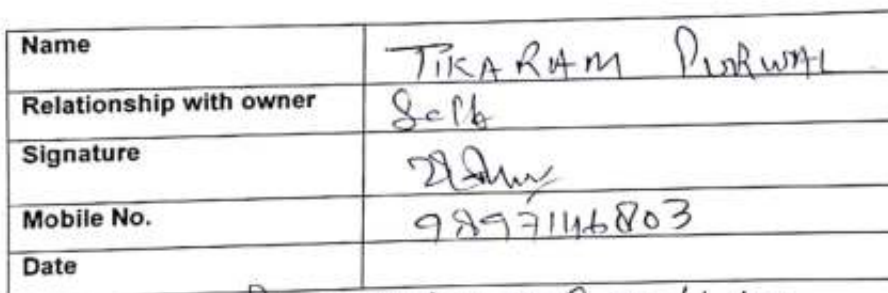 Name TIKARAM PURWAL
Relationship with owner Self
Signature
Mobile No. 9897146803
Date